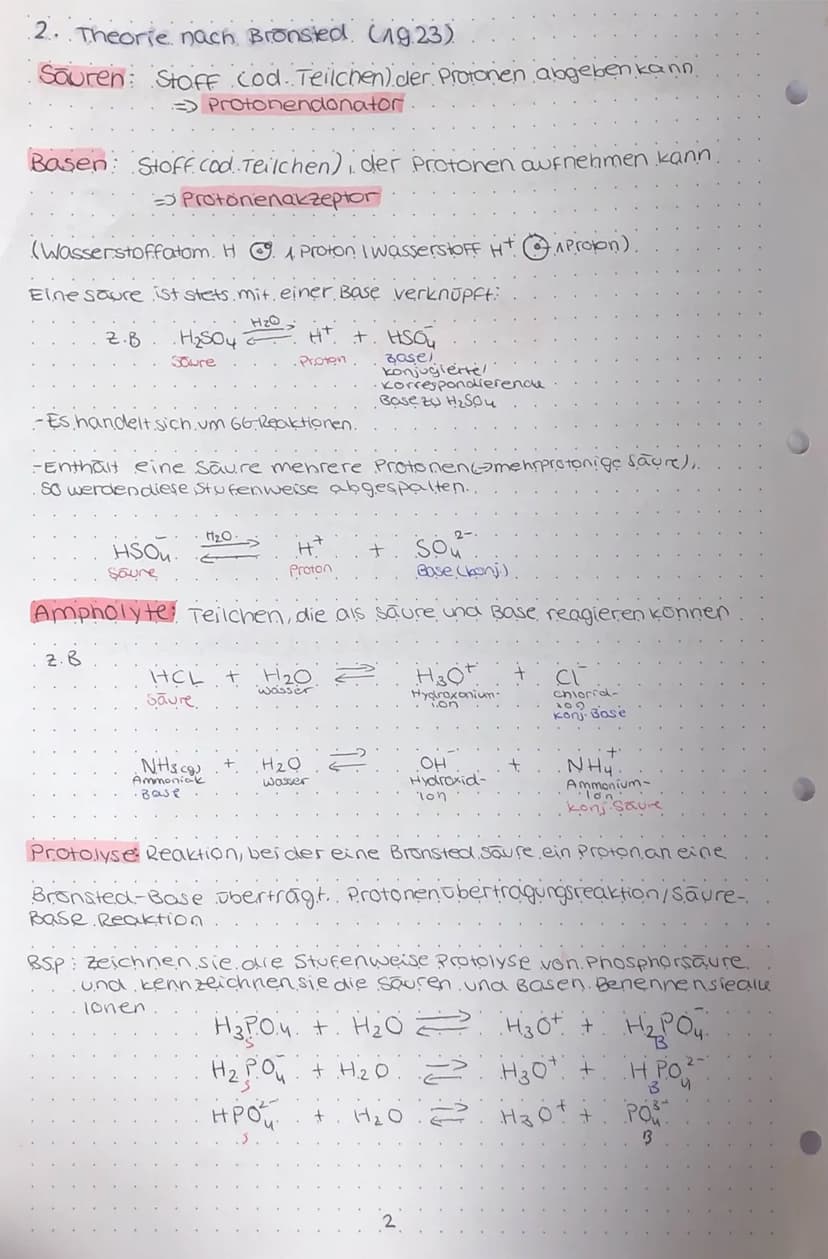 2. Theorie nach Brønsted (1923)
Säuren: Stoff (od. Teilchen), der Protonen abgeben kann
=> Protonendonator
Basen: Stoff (od. Teilchen), der Protonen aufnehmen kann
=> Protonenakzeptor
(Wasserstoffatom H 1 Proton | Wasserstoff H⁺ 1 Proton)
Eine Säure ist stets mit einer Base verknüpft:
z.B H₂SO₄ ⇌ H₂O H⁺ + HSO₄⁻
Säure Proton Base/
konjugierte/
korrespondierende
Base zu H₂SO₄
- Es handelt sich um GG-Reaktionen.
- Enthält eine Säure mehrere Protonen (→ mehrprotonige Säure),
so werden diese stufenweise abgespalten.
HSO₄⁻ ⇌ H₂O H⁺ + SO₄²⁻
Säure Proton Base (konj)
Ampholyte: Teilchen, die als Säure und Base reagieren können
z.B
HCL + H₂O ⇌ H₃O⁺ + Cl⁻
Säure Wasser Hydroxonium- Chlorid-
ion ion
konj. Base
NH₃(g) + H₂O ⇌ OH⁻ + NH₄⁺
Ammoniak Wasser Hydroxid- Ammonium-
Base Ion Ion
konj Säure
Protolyse: Reaktion, bei der eine Brønsted Säure ein Proton an eine
Brønsted-Base überträgt. Protonenübertragungsreaktion/Säure-
Base Reaktion
BSP: Zeichnen sie die Stufenweise Protolyse von Phosphorsäure
und kennzeichnen sie die Säuren und Basen. Benennen sie alle
Ionen
H₃PO₄ + H₂O ⇌ H₃O⁺ + H₂PO₄⁻
S B
H₂PO₄⁻ + H₂O ⇌ H₃O⁺ + HPO₄²⁻
S B
HPO₄²⁻ + H₂O ⇌ H₃O⁺ + PO₄³⁻
S B
2